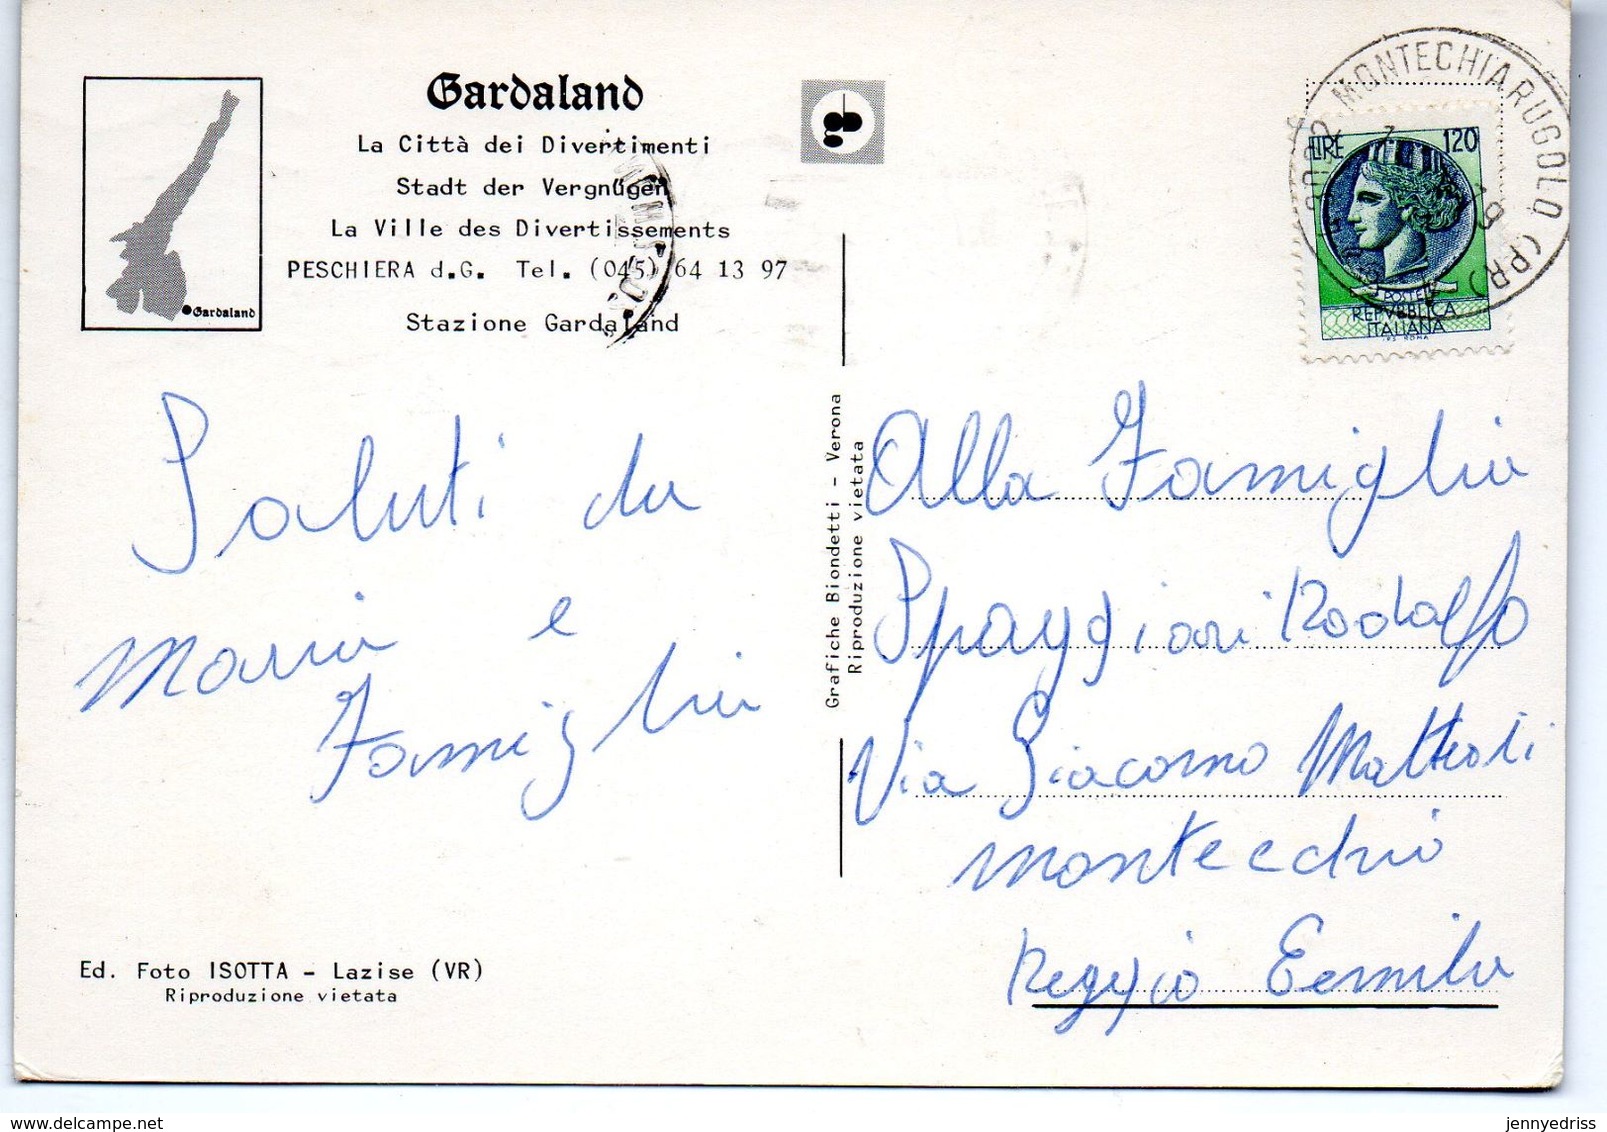 Gardaland
La Città dei Divertimenti
Stadt der Vergnügen
La Ville des Divertissements
PESCHIERA d.G. Tel. (045) 64 13 97
Stazione Gardaland
Gardaland
gb
MONTECHIARUGOLO (PR)
LIRE 120
POSTE
REPVBBLICA
ITALIANA
Saluti da
Maria e
Famiglia
Grafiche Biondetti - Verona
Riproduzione vietata
Alla Famiglia
Spaggiari Rodolfo
Via Giacomo Matteoti
Montecchio
Reggio Eemilia
Ed. Foto ISOTTA - Lazise (VR)
Riproduzione vietata
jennyedriss